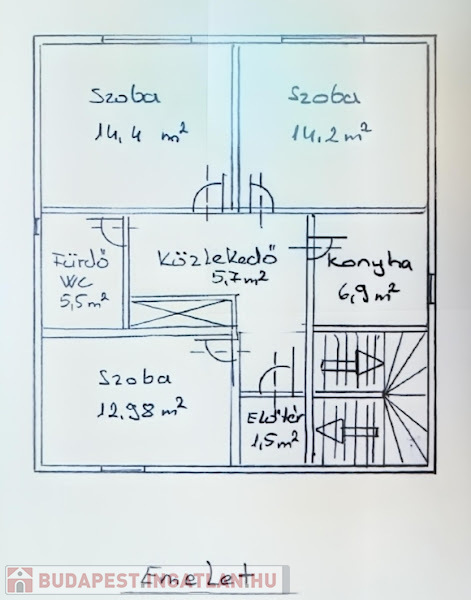 Szoba
14,4 m²
Szoba
14,2 m²
Fürdő
WC
5,5 m²
Közlekedő
5,7 m²
Konyha
6,9 m²
Szoba
12,98 m²
Előtér
1,5 m²
Emelet
BUDAPEST.INGATLAN.HU